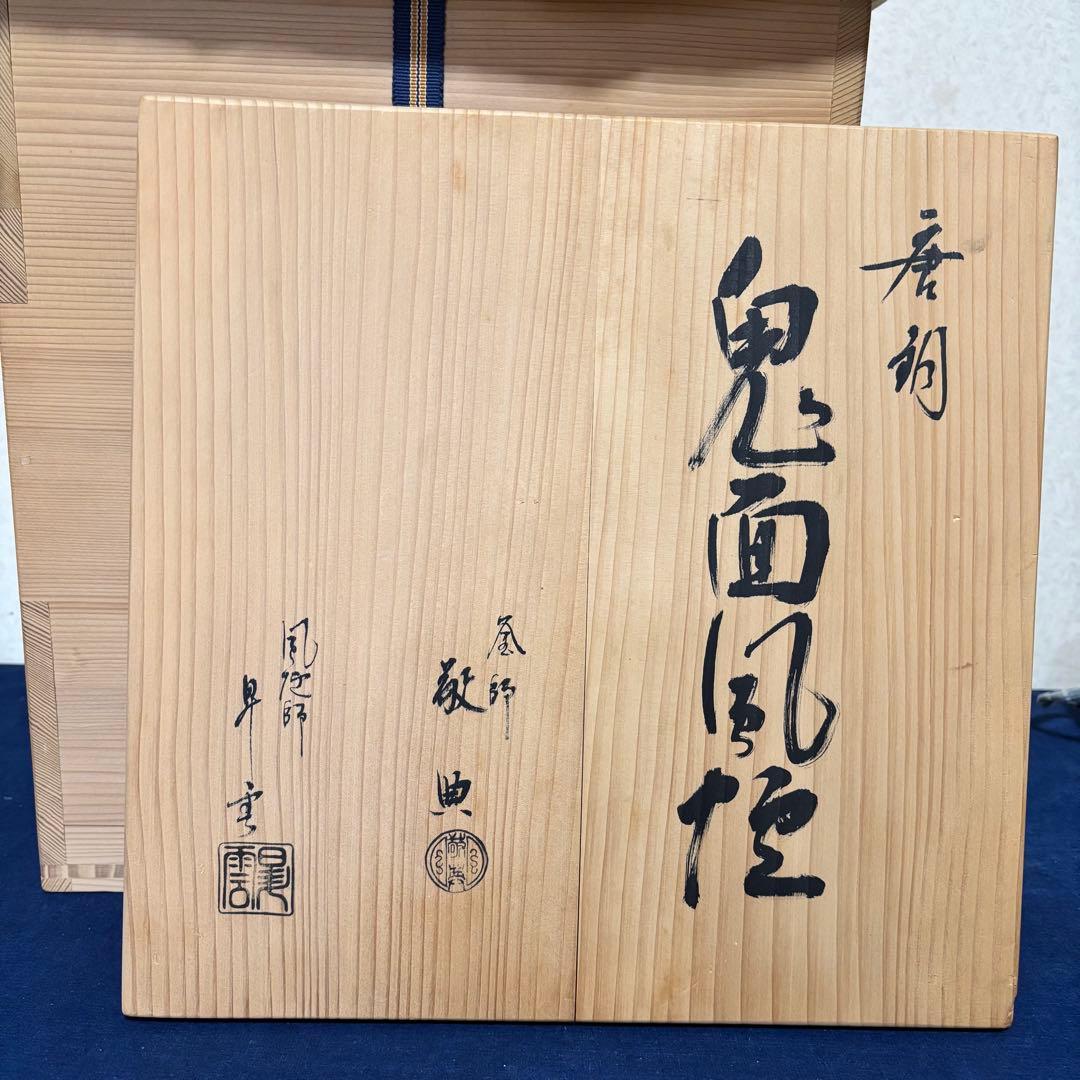 唐銅
鬼面風炉
釜師
敬典
敬典
風炉師
卓雲